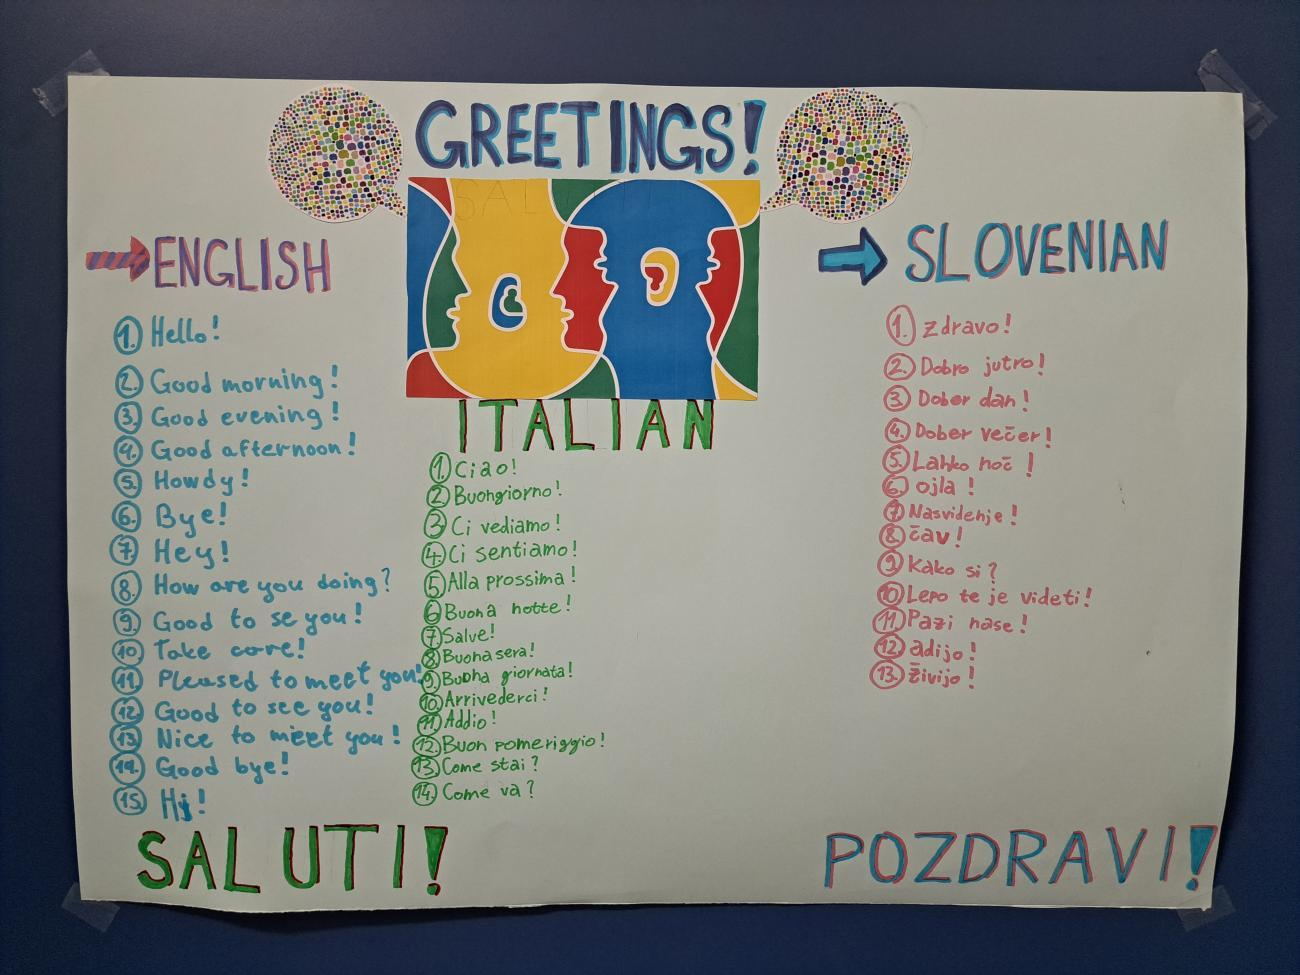 GREETINGS!
ENGLISH
1. Hello!
2. Good morning!
3. Good evening!
4. Good afternoon!
5. Howdy!
6. Bye!
7. Hey!
8. How are you doing?
9. Good to se you!
10. Take care!
11. Pleased to meet you!
12. Good to see you!
13. Nice to meet you!
14. Good bye!
15. Hi!
ITALIAN
1. Ciao!
2. Buongiorno!
3. Ci vediamo!
4. Ci sentiamo!
5. Alla prossima!
6. Buona notte!
7. Salve!
8. Buona sera!
9. Buona giornata!
10. Arrivederci!
11. Addio!
12. Buon pomeriggio!
13. Come stai?
14. Come va?
SLOVENIAN
1. Zdravo!
2. Dobro jutro!
3. Dober dan!
4. Dober večer!
5. Lahko noč!
6. ojla!
7. Nasvidenje!
8. čav!
9. Kako si?
10. Lepo te je videti!
11. Pazi nase!
12. adijo!
13. živijo!
SALUTI!
POZDRAVI!